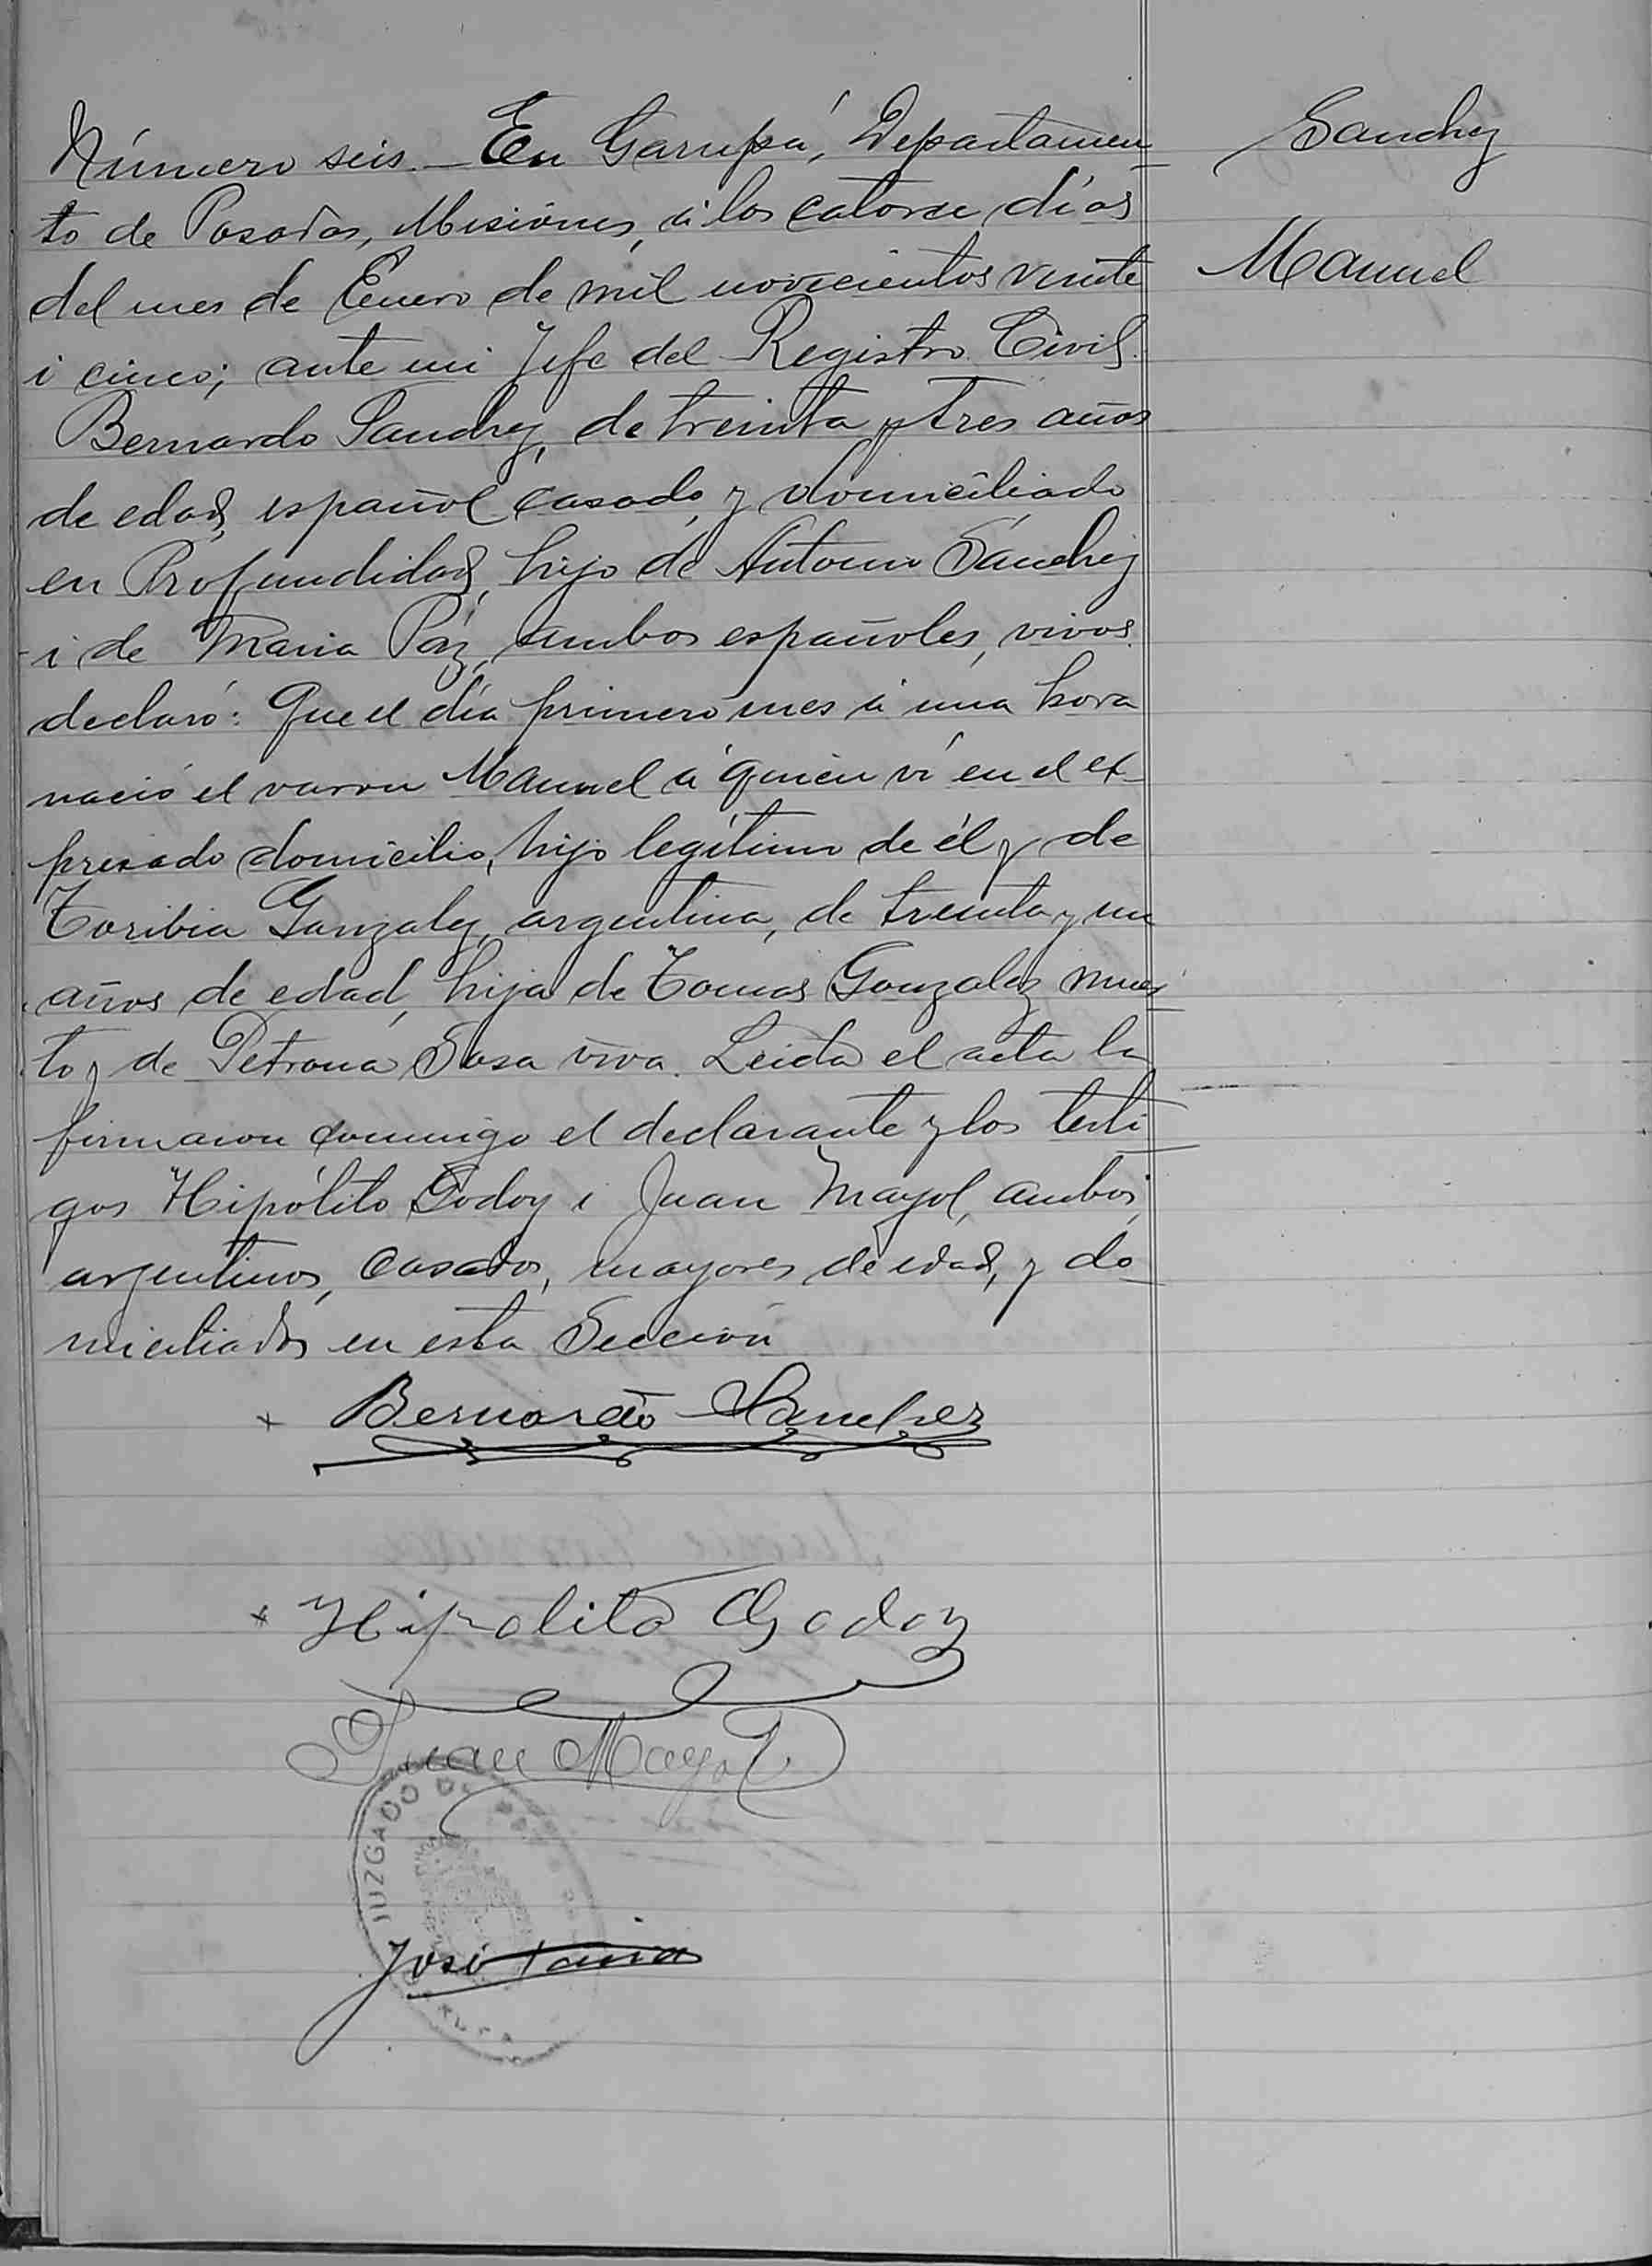 Sanchez
Manuel
Número seis.— En Garupá, Departamen-
to de Posadas, Misiónes, á los catorce días
del mes de Enero de mil novecientos veinte
i cinco; ante mi Jefe del Registro Civil.
Bernardo Sanchez, de treinta y tres años
de edad, español casado, y domiciliado
en Profundidad, hijo de Antonio Sánchez
i de Maria Páz, ambos españoles, vivos.
declaró: Que el día primero mes á una hora
nació el varon Manuel á quien ví en el ex-
presado domicilio, hijo legítimo de él y de
Toribia Gonzalez, argentina, de treinta y un
años de edad, hija de Tomas Gonzalez muer-
to y de Petrona Sosa viva. Leida el acta la
firmaron conmigo el declarante y los testi-
gos Hipólito Godoy i Juan Mayol, ambos,
argentinos, casados, mayores de edad, y do-
miciliados en esta Sección
+ Bernardo Sanchez
+ Hipolito Godoy
Juan Mayol
JUZGADO DE
José